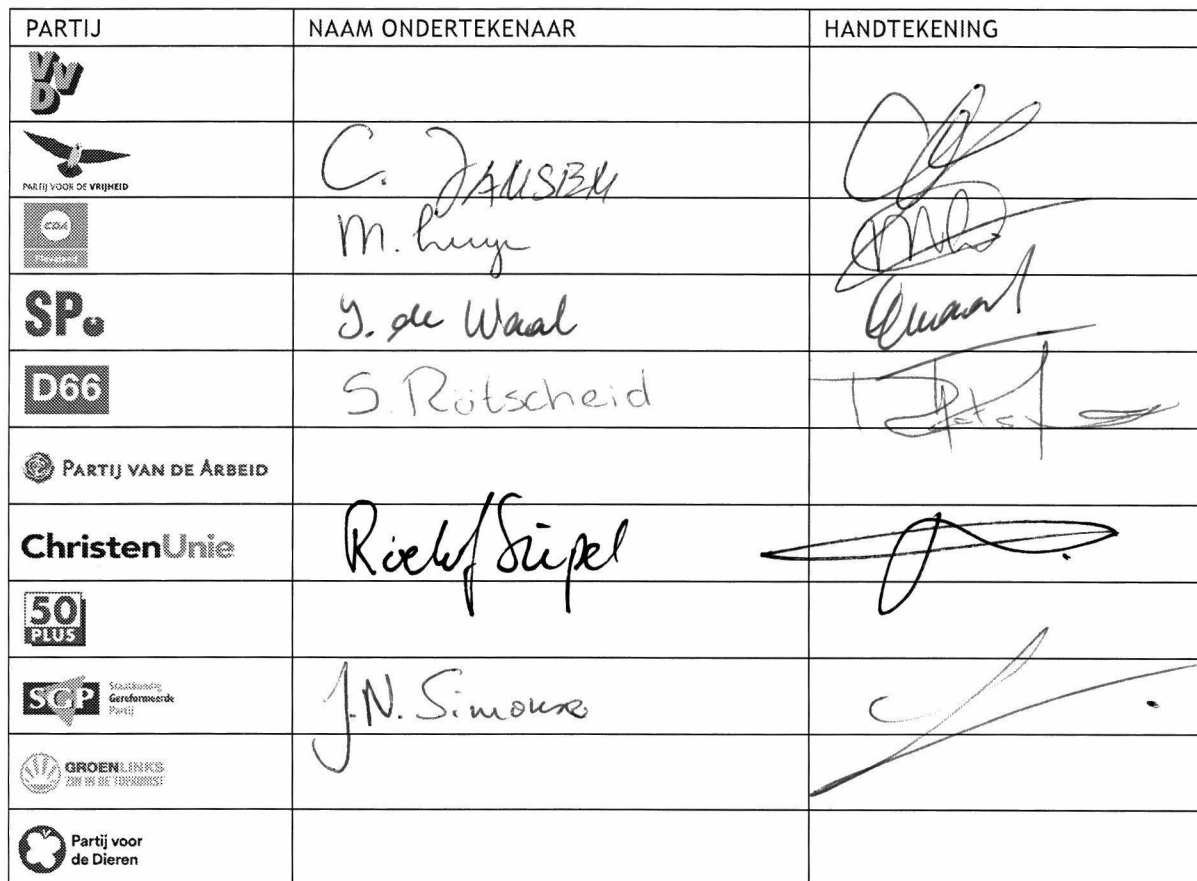 PARTIJ NAAM ONDERTEKENAAR HANDTEKENING
VVD
PARTIJ VOOR DE VRIJHEID C. JANSEN
CDA M. Luyer
SP. J. de Waal
D66 S. Rötscheid
PARTIJ VAN DE ARBEID
ChristenUnie Roelof Supèl
50 PLUS
SGP Staatkundig Gereformeerde Partij J.N. Simonse
GROENLINKS
ZIN IN DE TOEKOMST
Partij voor
de Dieren